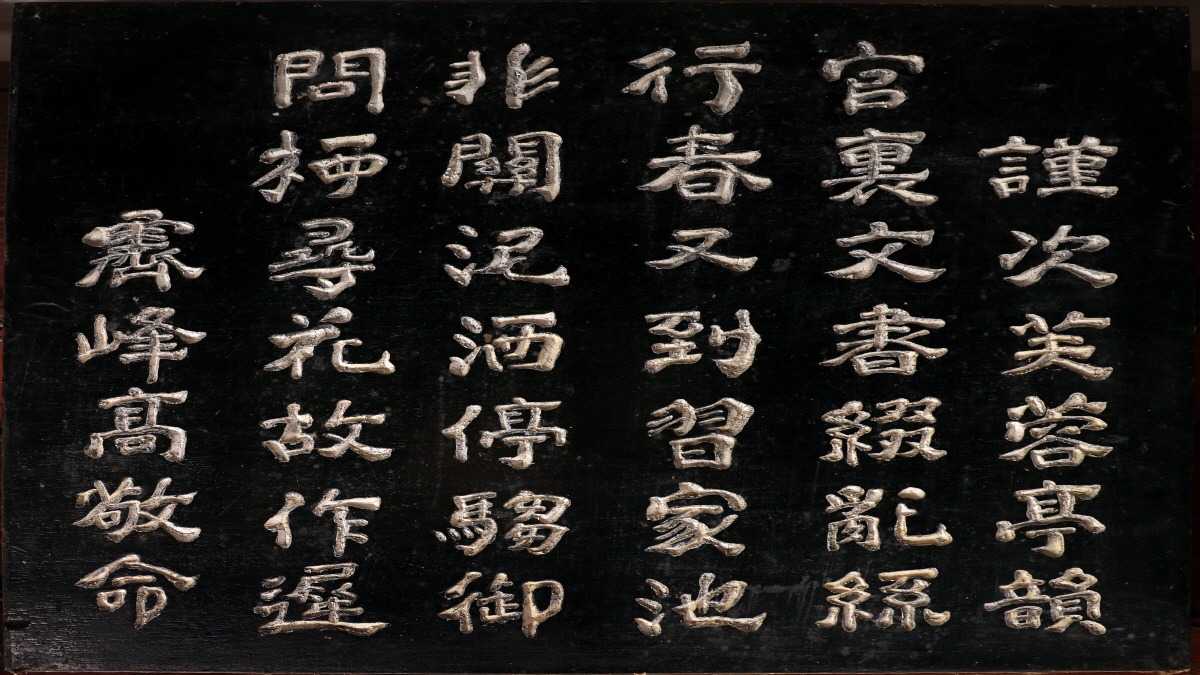 謹次芙蓉亭韻
官裏文書綴亂絲
行春又到習家池
非關泥酒停騶御
問桺尋花故作遲
霽峰高敬命